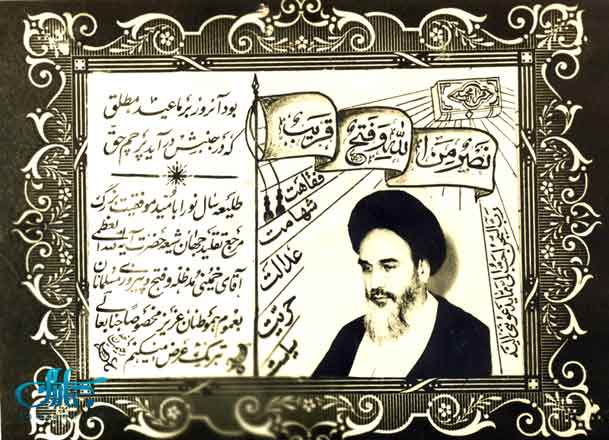 بود آنروز بر ما عید مطلق
که در جنبش در آید پرچم حق
طلیعه سال نو را با امید موفقیت بزرگ
مرجع تقلید جهان شیعه حضرت آیة الله العظمی
آقای خمینی مد ظله و فتح و پیروزی مسلمانان
بعموم هموطنان عزیز مخصوصا جنابعالی
تبریک عرض میکنیم
نصر من الله و فتح قریب
قرآن مجید
فقاهت
شهامت
عدالت
حریت